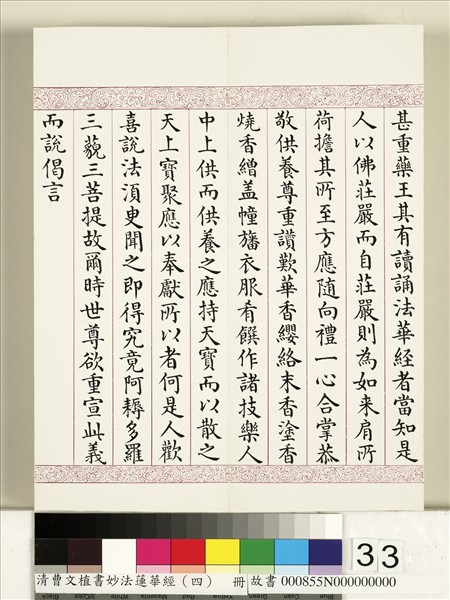 甚重藥王其有讀誦法華経者當知是
人以佛莊嚴而自莊嚴則為如来肩所
荷擔其所至方應随向禮一心合掌恭
敬供養尊重讚歎華香纓絡末香塗香
燒香繒盖幢旛衣服肴饌作諸技樂人
中上供而供養之應持天寶而以散之
天上寶聚應以奉獻所以者何是人歡
喜說法湏臾聞之即得究竟阿耨多羅
三藐三菩提故爾時世尊欲重宣此義
而說偈言
33
清曹文植書妙法蓮華經（四） 冊 故書 000855N000000000